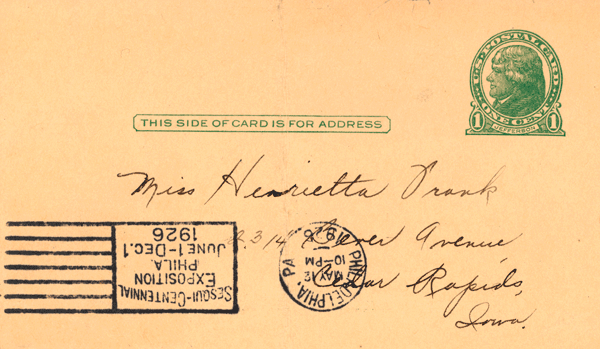 U.S. POSTAL CARD
ONE CENT
1 JEFFERSON 1
THIS SIDE OF CARD IS FOR ADDRESS
Miss Henrietta
Bever Avenue
Cedar Rapids,
Iowa.
SESQUI-CENTENNIAL
EXPOSITION
PHILA.
JUNE 1-DEC. 1
1926
PHILADELPHIA, PA
MAY 12
10-PM
1926